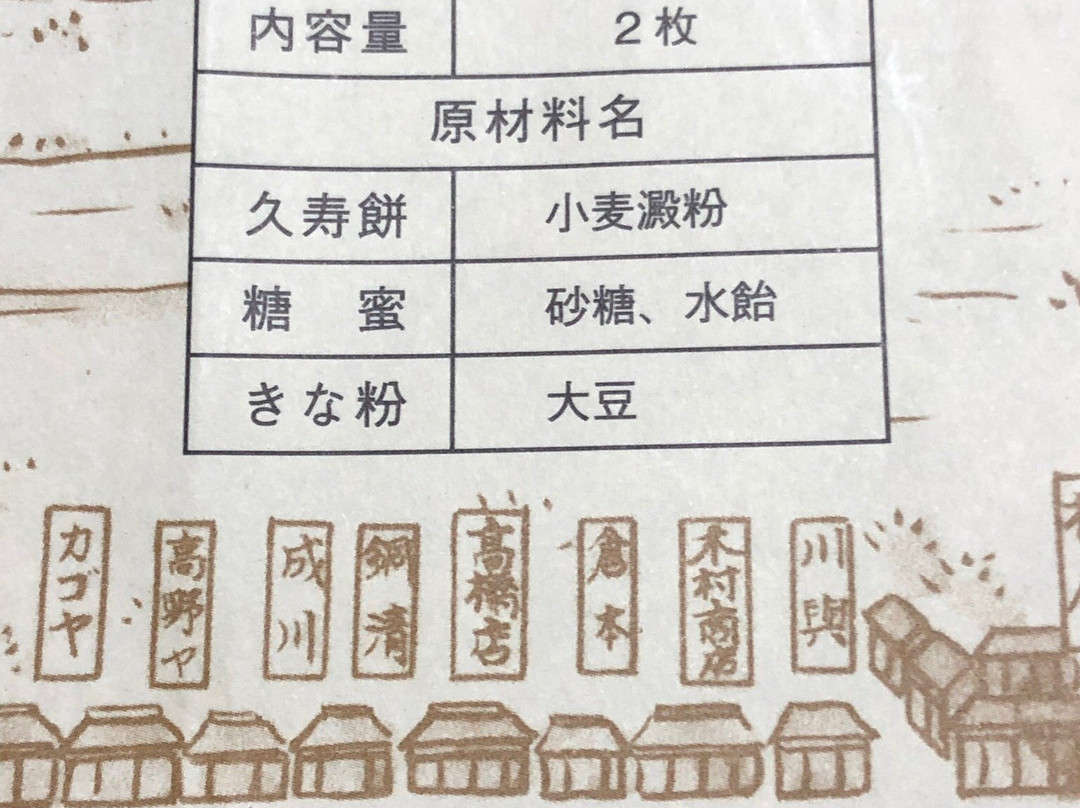 内容量 2枚
原材料名
久寿餅 小麦澱粉
糖 蜜 砂糖、水飴
きな粉 大豆
カゴヤ
高野ヤ
成川
鍋清
高橋店
倉本
木村商店
川與